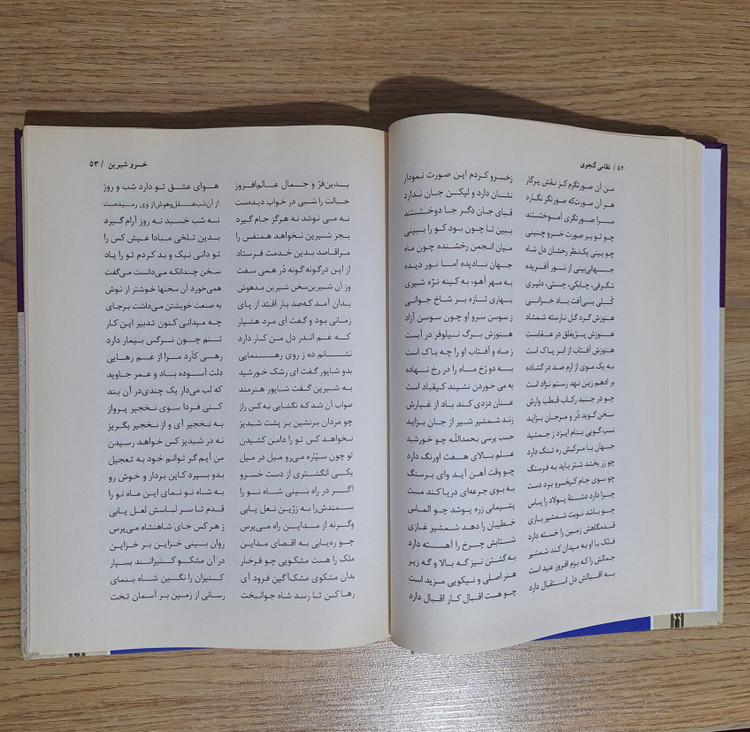 ۵۲ / نظامی گنجوی
من آن صورتگرم کز نقش پرگار زخسرو کردم این صورت نمودار
هر آن صورت‌که صورتگر نگارد نشان دارد و لیکن جان ندارد
مرا صورتگری آموختستند قبای جان دگر جا دوختستند
چو تو بر صورت خسرو چنینی ببین تا چون بود کو را ببینی
چو بینی یک‌نظر رخشان دل شاه میان انجمن رخشنده چون ماه
جهانی‌بینی از نور آفریده جهان نادیده اما نور دیده
شگرفی، چابکی، چستی، دلیری به مهر آهو، به کینه نرّه شیری
گلی بی‌آفت باد خزانی بهاری تازه بر شاخ جوانی
هنوزش گرد گل نارسته شمشاد ز سوسن سرو او چون سوسن آزاد
هنوزش پرّیغلق در عقابست هنوزش برگ نیلوفر در آبست
هنوزش آفتاب از ابر پاک است ز ماه و آفتاب او را چه باک است
به یک موی از ارم صد در گشاده به دو رُخ ماه را در رخ نهاده
بر ادهم زین نهد رستم نژاد است به می خوردن نشیند کیقباد است
چو در جنبد رکاب قطب وارش عنان دزدی کند باد از غبارش
سخن گوید دُر و مرجان بزاید زند شمشیر شیر از جان بزاید
نسب گویی بنام ایزد ز جمشید حسب پرسی بحمداللّه چو خورشید
جهان با مرکبش ره تنگ دارد علم بالای هفت اورنگ دارد
چو زر بخشد شتر باید به فرسنگ چو وقت آهن آید وای برسنگ
چو سوی جام کیخسرو برد دست به بوی جرعه‌ای دریا کند مست
چرا دارد دشنهٔ پولاد را پاس پشیمانی زره پوشد چو الماس
چو باشد نوبت شمشیر بازی خطیبان را دهد شمشیر غازی
قدمگاهش زمین را خسته دارد شتابش چرخ را آهسته دارد
فلک با او به میدان کند شمشیر به گشتن نیز که بالا و گه زیر
جمالش را که بزم افروز عید است هنر اصلی و نیکویی مزید است
به اقبالش دل استقبال دارد چو هست اقبال کار اقبال دارد
خسرو شیرین / ۵۳
بدین‌فرّ و جمال عالم‌افروز هوای عشق تو دارد شب و روز
خیالت را شبی در خواب دیدست از آن‌شب‌عقل‌وهوش‌از وی رمیدست
نه می نوشد نه هرگز جام گیرد نه شب خسبد نه روز آرام گیرد
بجز شیرین نخواهد همنفس را بدین تلخی مبادا عیش کس را
مراقاصد بدین خدمت فرستاد تو دانی نیک و بد کردم تو را یاد
از این درگونه گونه دُر همی سفت سخن چندانکه می‌دانست می‌گفت
وز آن شیرین‌سخن شیرین مدهوش همی‌خورد آن سخنها خوشتر از نوش
بدان آمد که‌صد بار افتد از پای به صنعت خویشتن می‌داشت برجای
زمانی بود و گفت ای مرد هشیار چه میدانی کنون تدبیر این کار
که غم اندر دل من کار دارد تنم چون نرگس بیمار دارد
نشانم ده ز روی رهنمایی رهی کآرد مرا از غم رهایی
بدو شاپور گفت ای رشک خورشید دلت آسوده باد و عمر جاوید
به شیرین گفت شاپور هنرمند که لب می‌دار یک چندی‌در آن بند
صواب آن شد که نگشایی به کس راز کنی فردا سوی نخجیر پرواز
چو مردان برنشین بر پشت شبدیز به نخجیر آی و از نخجیر بگریز
نخواهد کس تو را دامن کشیدن نه در شبدیز کس خواهد رسیدن
تو چون سیّاره می‌رو میل در میل من آیم گر توانم خود به تعجیل
یکی انگشتری از دست خسرو بدو بسپرد کاین بردار و خوش رو
اگر در راه بینی شاه نو را به شاه نو نمای این ماه نو را
سمندش‌را به زرّین نعل یابی قدم تا سر لباسش لعل یابی
وگرنه از مداین راه می‌پرس ز هر کس جای شاهنشاه می‌پرس
چو ره‌یابی به اقصای مداین روان بینی خزاین بر خزاین
ملک را هست مشکویی چو فرخار در آن مشکو کنیزانند بسیار
بدان مشکوی مشک‌آگین فرود آی کنیزان را نگین شاه بنمای
رها کن تا رسد شاه جوانبخت رسانی از زمین بر آسمان تخت